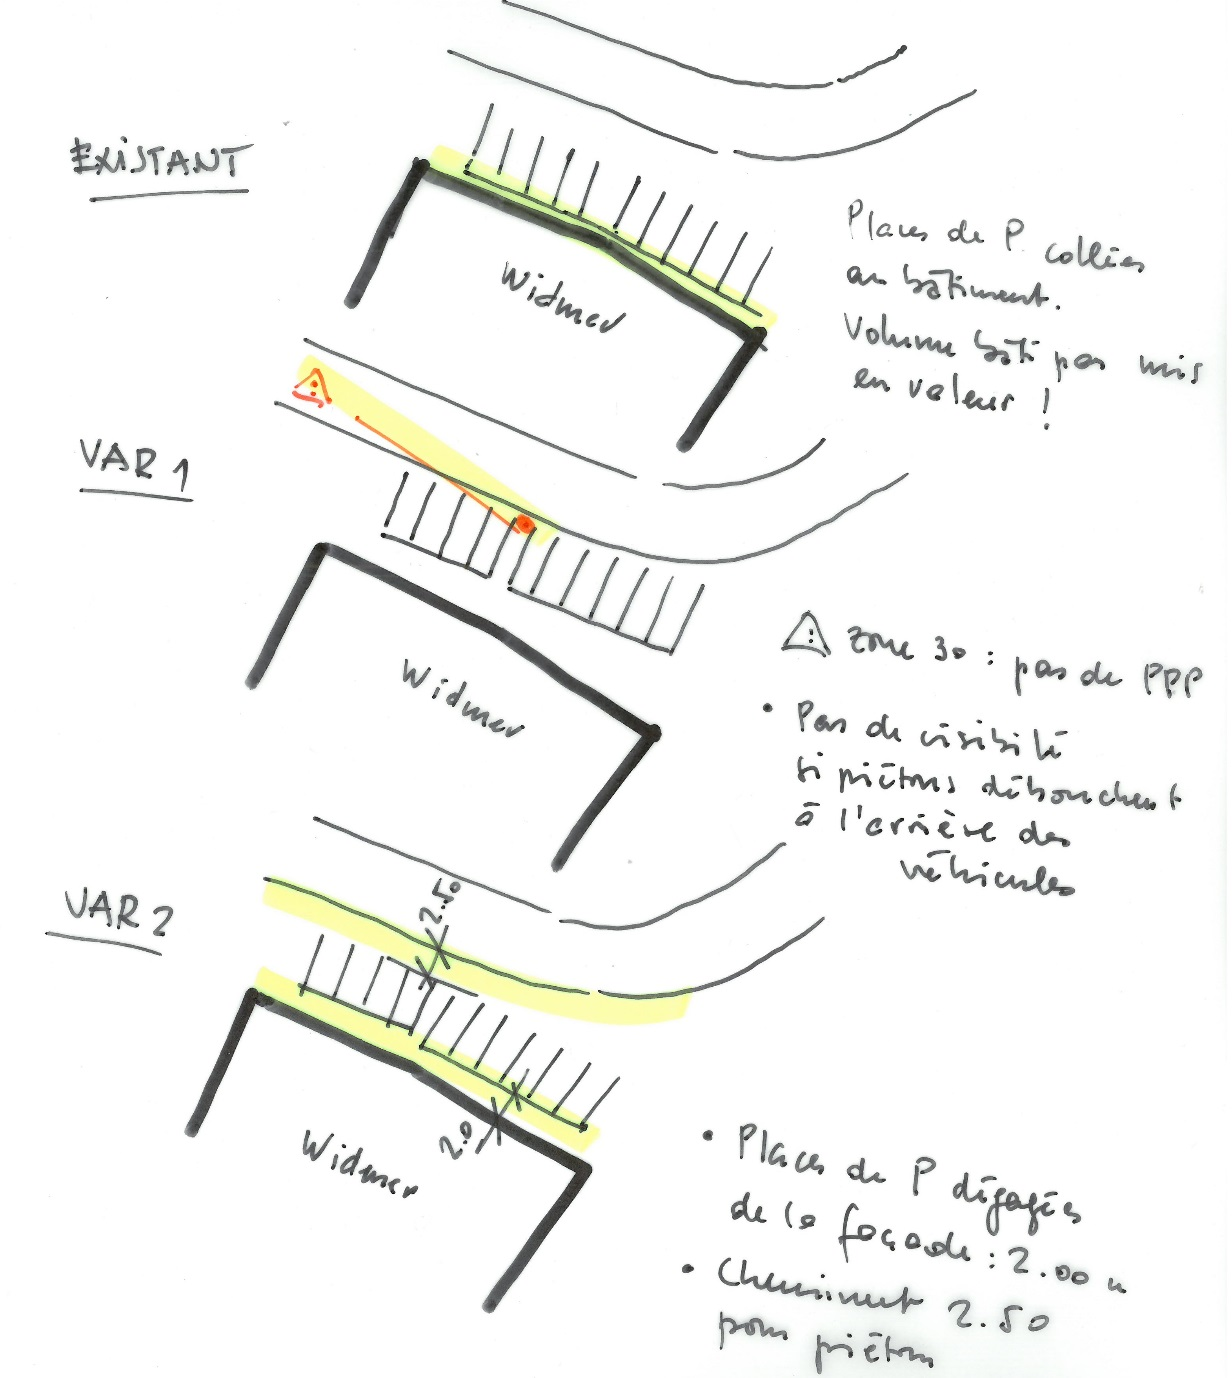 EXISTANT
Widmer
Places de P collées
au bâtiment.
Volume bâti pas mis
en valeur !
VAR 1
Widmer
Zone 30 : pas de PPP
• Pas de visibilité
si piétons débouchent
à l'arrière des
véhicules
VAR 2
2.50
2.0
Widmer
• Places de P dégagées
de la façade : 2.00 m
• Cheminement 2.50
pour piétons